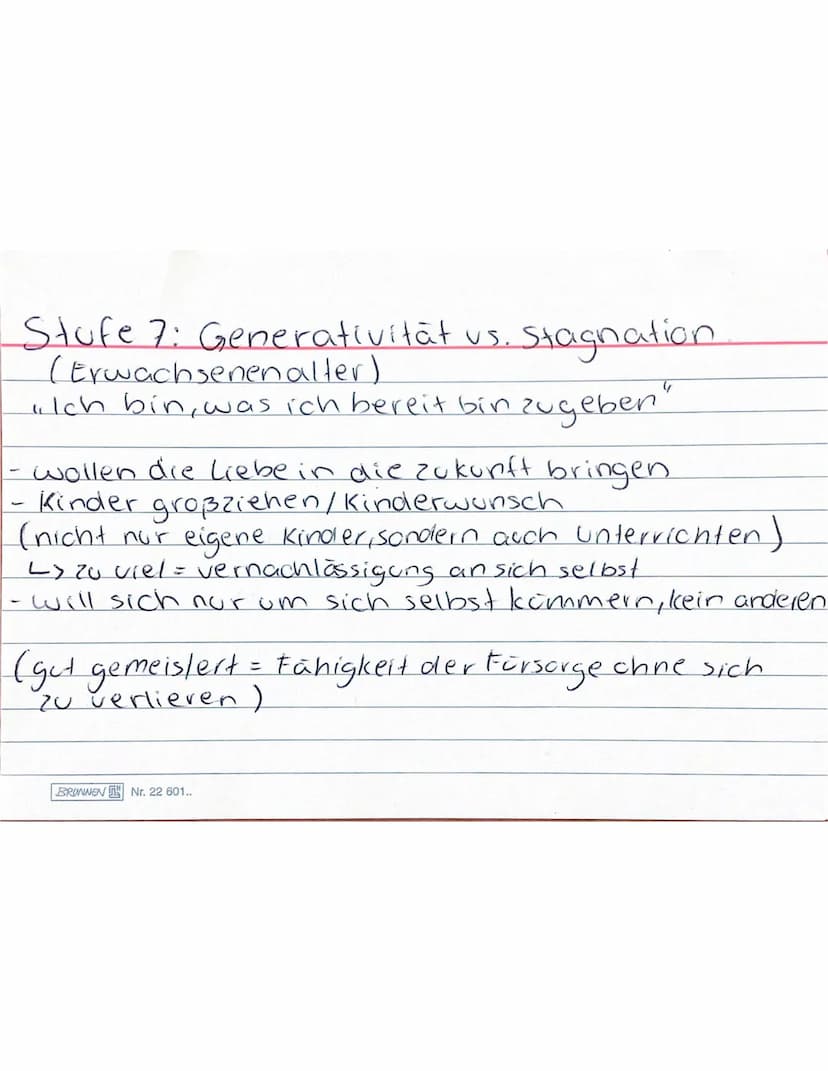 Stufe 7: Generativität vs. Stagnation
(Erwachsenenalter)
„Ich bin, was ich bereit bin zugeben“
- wollen die Liebe in die zukunft bringen
- Kinder großziehen/Kinderwunsch
(nicht nur eigene Kinder, sondern auch Unterrichten)
↳ zu viel = vernachlässigung an sich selbst
- will sich nur um sich selbst kümmern, kein anderen
(gut gemeistert = Fähigkeit der Fürsorge ohne sich
zu verlieren)
BRUNNEN Nr. 22 601..